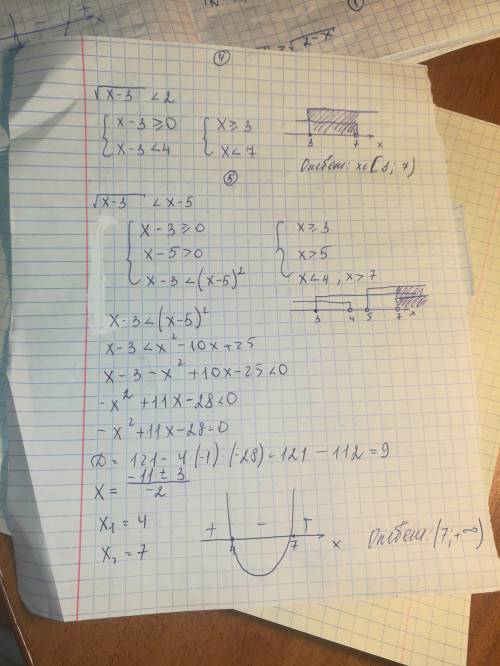 ④
√x-3 < 2
{ x-3 ≥ 0
x-3 < 4
{ x ≥ 3
x < 7
3 7 x
Ответ: x∈[3; 7)
⑤
√x-3 < x-5
{ x-3 ≥ 0
x-5 > 0
x-3 < (x-5)²
{ x ≥ 3
x > 5
x < 4, x > 7
3 4 5 7 x
x-3 < (x-5)²
x-3 < x² - 10x + 25
x-3 - x² + 10x - 25 < 0
-x² + 11x - 28 < 0
-x² + 11x - 28 = 0
D = 121 - 4·(-1)·(-28) = 121 - 112 = 9
x = -11 ± 3 / -2
x₁ = 4
x₂ = 7
+ - +
4 7 x
Ответ: (7; +∞)